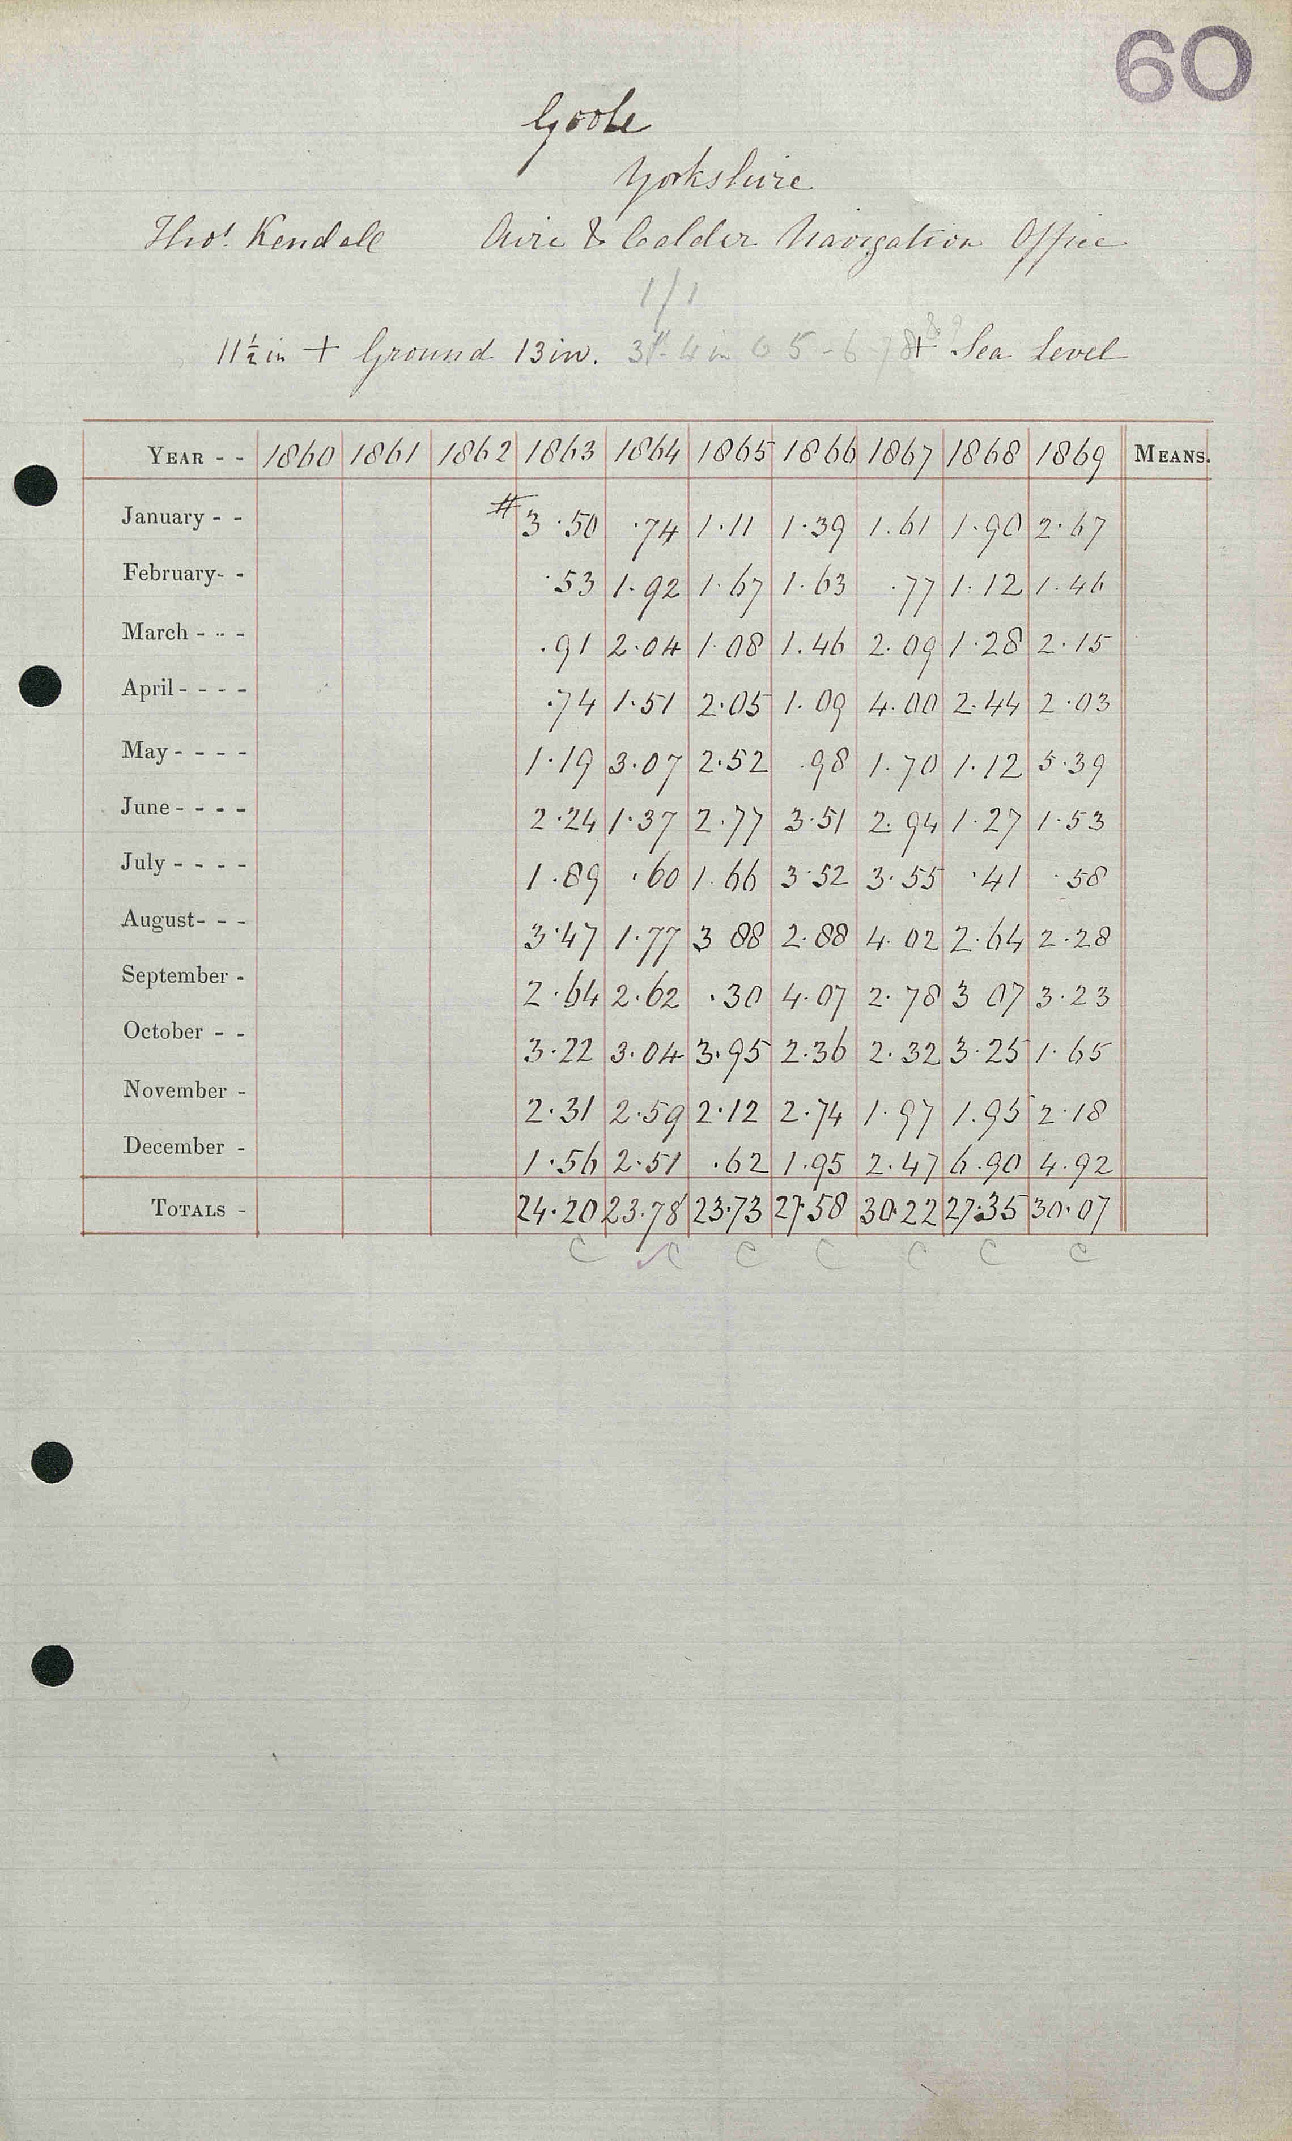 60
Goole
Yorkshire
Thos. Kendall Aire & Calder Navigation Office
1/1
11½ in + Ground 13 in. Sea Level
YEAR - - 1860 1861 1862 1863 1864 1865 1866 1867 1868 1869 MEANS.
January - - # 3.50 .74 1.11 1.39 1.61 1.90 2.67
February - - .53 1.92 1.67 1.63 .77 1.12 1.46
March - - - .91 2.04 1.08 1.46 2.09 1.28 2.15
April - - - - .74 1.51 2.05 1.09 4.00 2.44 2.03
May - - - - 1.19 3.07 2.52 .98 1.70 1.12 5.39
June - - - - 2.24 1.37 2.77 3.51 2.94 1.27 1.53
July - - - - 1.89 .60 1.66 3.52 3.55 .41 .58
August - - - 3.47 1.77 3 88 2.88 4.02 2.64 2.28
September - 2.64 2.62 .30 4.07 2.78 3 07 3.23
October - - 3.22 3.04 3.95 2.36 2.32 3.25 1.65
November - 2.31 2.59 2.12 2.74 1.97 1.95 2.18
December - 1.56 2.51 .62 1.95 2.47 6.90 4.92
TOTALS - 24.20 23.78 23.73 27.58 30.22 27.35 30.07
C ✓C C C C C C